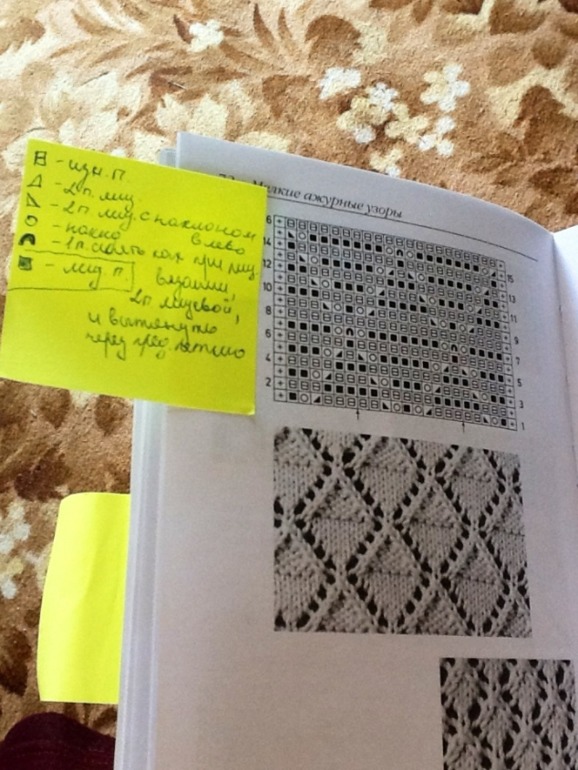 Мелкие ажурные узоры
- изн. п.
- 2п. лиц.
- 2п. лиц. с наклоном
влево
- накид
- 1п. снять как при лиц.
вязании,
- лиц. п.
2п лицевой,
и вытянуть
через петлю
6
14
12
10
8
6
4
2
15
13
11
9
7
5
3
1